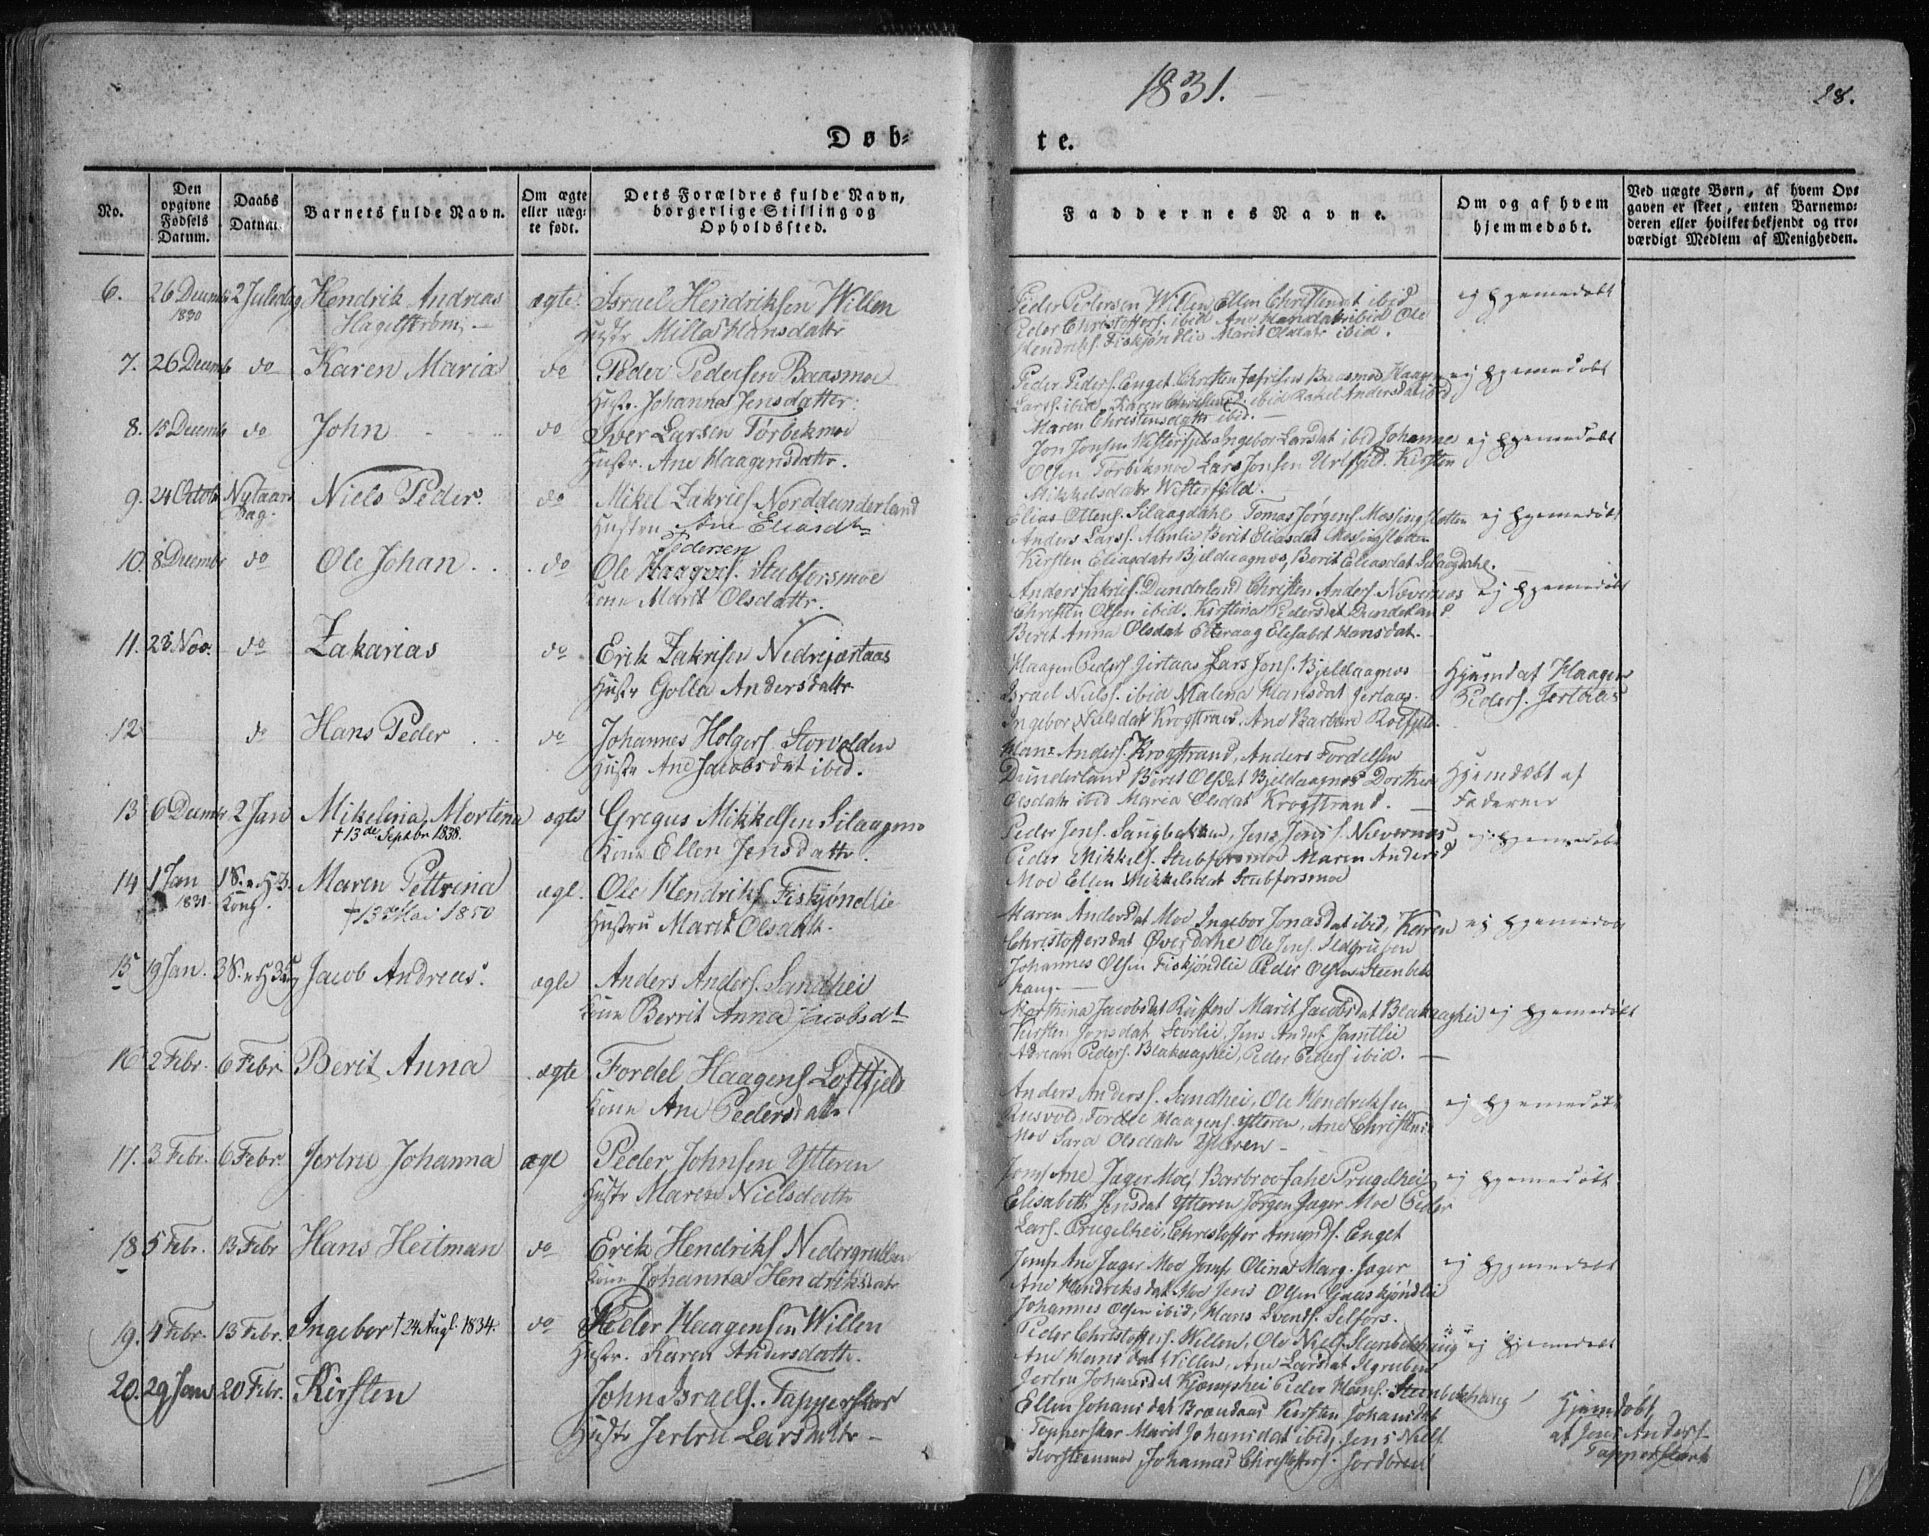 1831.
28.
Døb=
te.
No.
Den opgivne Fødsels Datum.
Daabs Datum.
Barnets fulde Navn.
Om ægte eller uægte født.
Dets Forældres fulde Navn, borgerlige Stilling og Opholdssted.
Faddernes Navne.
Om og af hvem hjemmedøbt.
Ved uægte Børn, af hvem Opgaven er skeet, enten Barnemoderen eller hvilket bekjendt og troværdigt Medlem af Menigheden.
6. 26 Decemb 1830 2 Juledag Hendrik Andreas Hagelstrøm ægte Israel Hendriksen Willen
Hustr Milla Hansdattr
Peder Pedersen Willen, Ellen ibid
Peder Christoffers. ibid Ane Hansdatr ibid Ole
Hendriks. Fiskjøndlie Marit Olsdatr ibid.
ej hjemmedøbt
7. 26 Decemb do Karen Maria do Peder Pedersen Baasmoe
Hustr. Johanna Jensdatter.
Peder Peders. Enget Baasmoe Haagen
Larss. ibid, Karen ibid Rakel Andersdat ibid,
Maren Christensdattr ibid.
ej hjemmedøbt
8. 15 Decemb do John do Iver Larsen Tørbekmoe
Hustr. Ane Haagensdattr.
Jon Jonsen Westerfjeld Ingebor Larsdat ibid Johannes
Olsen Tørbekmoe Lars Jonsen Urtfjeld. Kirsten
Mikkelsdatr Westerfjeld.
ej hjemmedøbt
9. 24 Octob Nytaars Dag. Niels Peder. do Mikel Zakries Norddunderland
Hustru Ane Eliasdtr
Elias Ottens. Silaagdahl Tomas Jørgens. Messingsletten
Anders Larss. Almlie Berit Eliasdat Messingsletten
Kirsten Eliasdatr Bjeldaagnæs, Berit Eliasdat Silaagdahl.
ej hjemmedøbt
10. 8 Decembr do Ole Johan do Ole Pedersen Stubforsmoe
Kone Marit Olsdattr.
Anders Zakries. Dunderland Christen Anders. Nævernæs
Christen Olsen ibid, Kirstina Pedersdat Dunderland
Berit Anna Olsdat Elisabet Hansdat.
ej hjemmedøbt
11. 23 Nov. do Zakarias do Erik Zakrisen Nedrejartaas
Hustr Golla Andersdattr
Haagen Peders. Jertaas Lars Jons. Bjeldaagnæs
Israel Niels. ibid Malena Hansdat Jertaas.
Ingebor Nielsdat Krogstrand, Ane Barbara
Hjemdøbt Haagen
Peders. Jertaas
12 do Hans Peder do Johannes Holgers. Storvolden
Hustr Ane Jacobsdat ibid.
Hans Anders. Krogstrand, Anders Fordelsen
Dunderland Berit Olsdat Bjeldaagnæs Dorthea
Olsdatr ibid Maria Olsdat Krogstrand.
Hjemdøbt af
Faderen
13 6 Decemb 2 Jan Mikelina Mortina ægte Gregus Mikkelsen Silaagmo
† 13de Septbr 1838.
Kone Ellen Jensdattr.
Peder Jens. Jens Jens. Nævernæs
Peder Mikkels. Stubforsmoe Maren Andersd
Moe Ellen Mikkelsdat Stubforsmoe
ej hjemmedøbt
14 1 Jan 1831 1 S. e. H 3 Kong. Maren Pettrina ægt. Ole Hendriks Fiskjøndlie
† 13de Mai 1850
Hustru Marit Olsdatt.
Maren Andersdat Moe, Ingebor Jonasdat ibid, Karen
Christoffersdat Øverdahl Ole Jens. Ildgruben
Johannes Olsen Fiskjøndlie Peder Olsen Steenbek
haug.
ej hjemmedøbt
15 19 Jan. 3 S. e. H 3 Kong Jacob Andreas. ægte Anders Anders. Sandhei
Kone Berrit Anna Jacobsdtr
Marthina Jacobsdat Marit Jacobsdat Blakaaghei
Kirsten Jonsdat Storlie, Jens Anders. Jamtlie
Adrian Peders. Blakaaghei, Peder Peders. ibid.
ej hjemmedøbt
16 2 Febr. 6 Febr. Berit Anna ægte Fordel Haagens. Loftfjeld
Kone Ane Pedersdatr
Anders Anderss. Sandhei, Ole Hendriksen
Rusvold, Fordel Haagens. Ytteren, Ane
Moe Sara Olsdatr Ytteren
ej hjemmedøbt
17. 3 Febr. 6 Febr. Jertru Johanna ægt Peder Johnsen Ytteren
Hustr Maren Nielsdattr
Jomf Ane Jager Moe, Barbroe Prugelhei
Elisabeth Jensdat Ytteren Jørgen Jager Moe Peder
Lars. Prugelhei, Christoffer Amunds. Enget
ej hjemmedøbt
18 5 Febr. 13 Febr Hans Heitman do Erik Hendriks Nedergruben
Kone Johanna Hendriksdatr
Jomf Ane Jager Moe Jomf Olina Marg. Jager
Ane Hendriksdat Moe Jens Olsen Gaaskjøndlie
Johannes Olsen ibid, Hans Svends. Selfors.
ej hjemmedøbt
19. 4 Febr. 13 Febr. Ingebor † 24 Augt. 1834. do Peder Haagensen Willen
Hustr. Karen Andersdattr.
Peder Christoffers. Willen, Ole Niels. Steenbekhaug
Ane Hansdat Willen, Ane Larsdat Ilgruben
Jertru Johansdat Kjemphei Peder Hans. Steenbekhaug
ej hjemmedøbt
20. 29 Jan 20 Febr. Kirsten John Israels. Tapperskar
Hustr Jertru Larsdattr
Ellen Johansdat Brændaas Kirsten Johansdat
Tapperskar Marit Johansdat ibid, Jens Niels.
Storsteenmoe Johannes Christoffers. Jordbroe
Hjemdøbt,
af Jens Anders.
Tapperskar